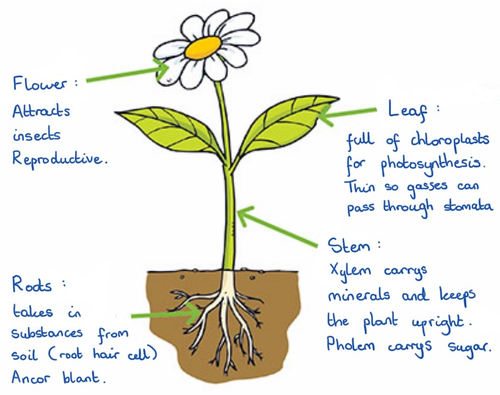 Flower :
Attracts
insects
Reproductive.
Leaf :
full of chloroplasts
for photosynthesis.
Thin so gasses can
pass through stomata
Stem :
Xylem carrys
minerals and keeps
the plant upright.
Pholem carrys sugar.
Roots :
takes in
substances from
soil (root hair cell)
Ancor blant.